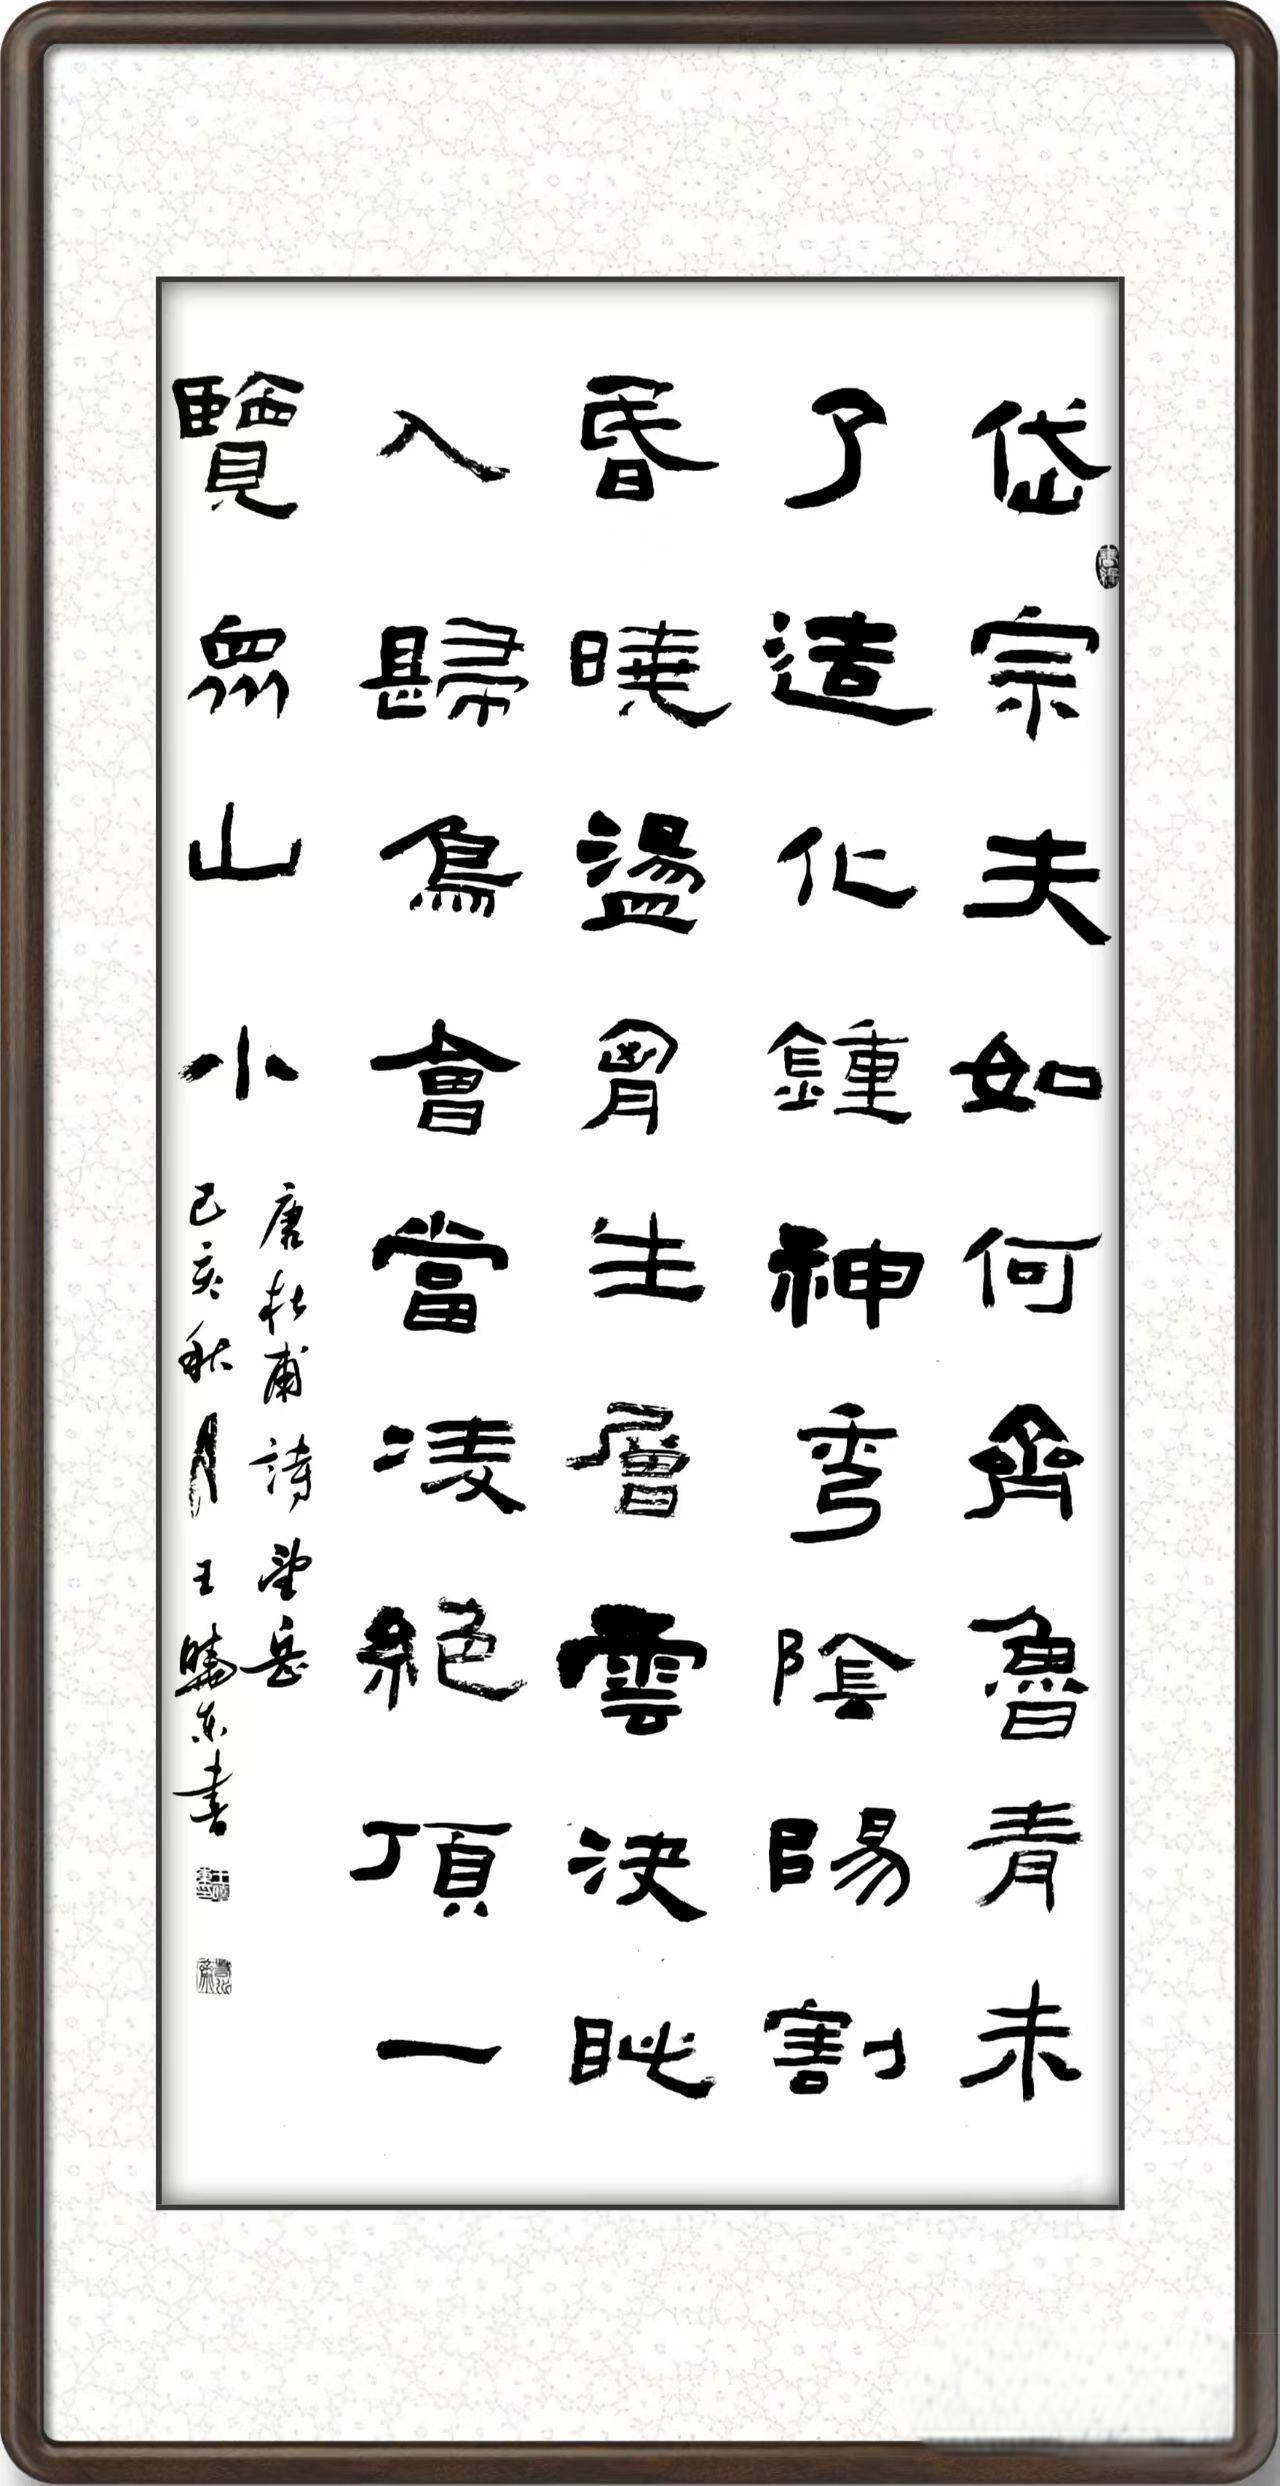 岱宗夫如何齊魯青未
了造化鍾神秀陰陽割
昏曉盪胷生層雲決眦
入歸鳥會當凌絕頂一
覽眾山小
唐杜甫詩望岳
己亥秋月王曉东書